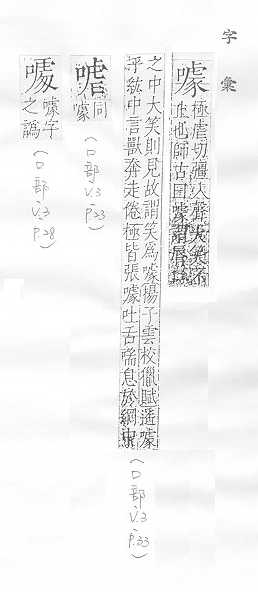 字彙
噱
極虐切彊入聲大笑不
止也師古曰噱謂唇
之中大笑則見故謂笑爲噱楊子雲校獵賦遙噱
乎紘中言獸奔走倦極皆張噱吐舌喘息於網中
(口部 v.3 p.33)
同噱
(口部 v.3 p.23)
噱字
之譌
(口部 v.3 p.28)